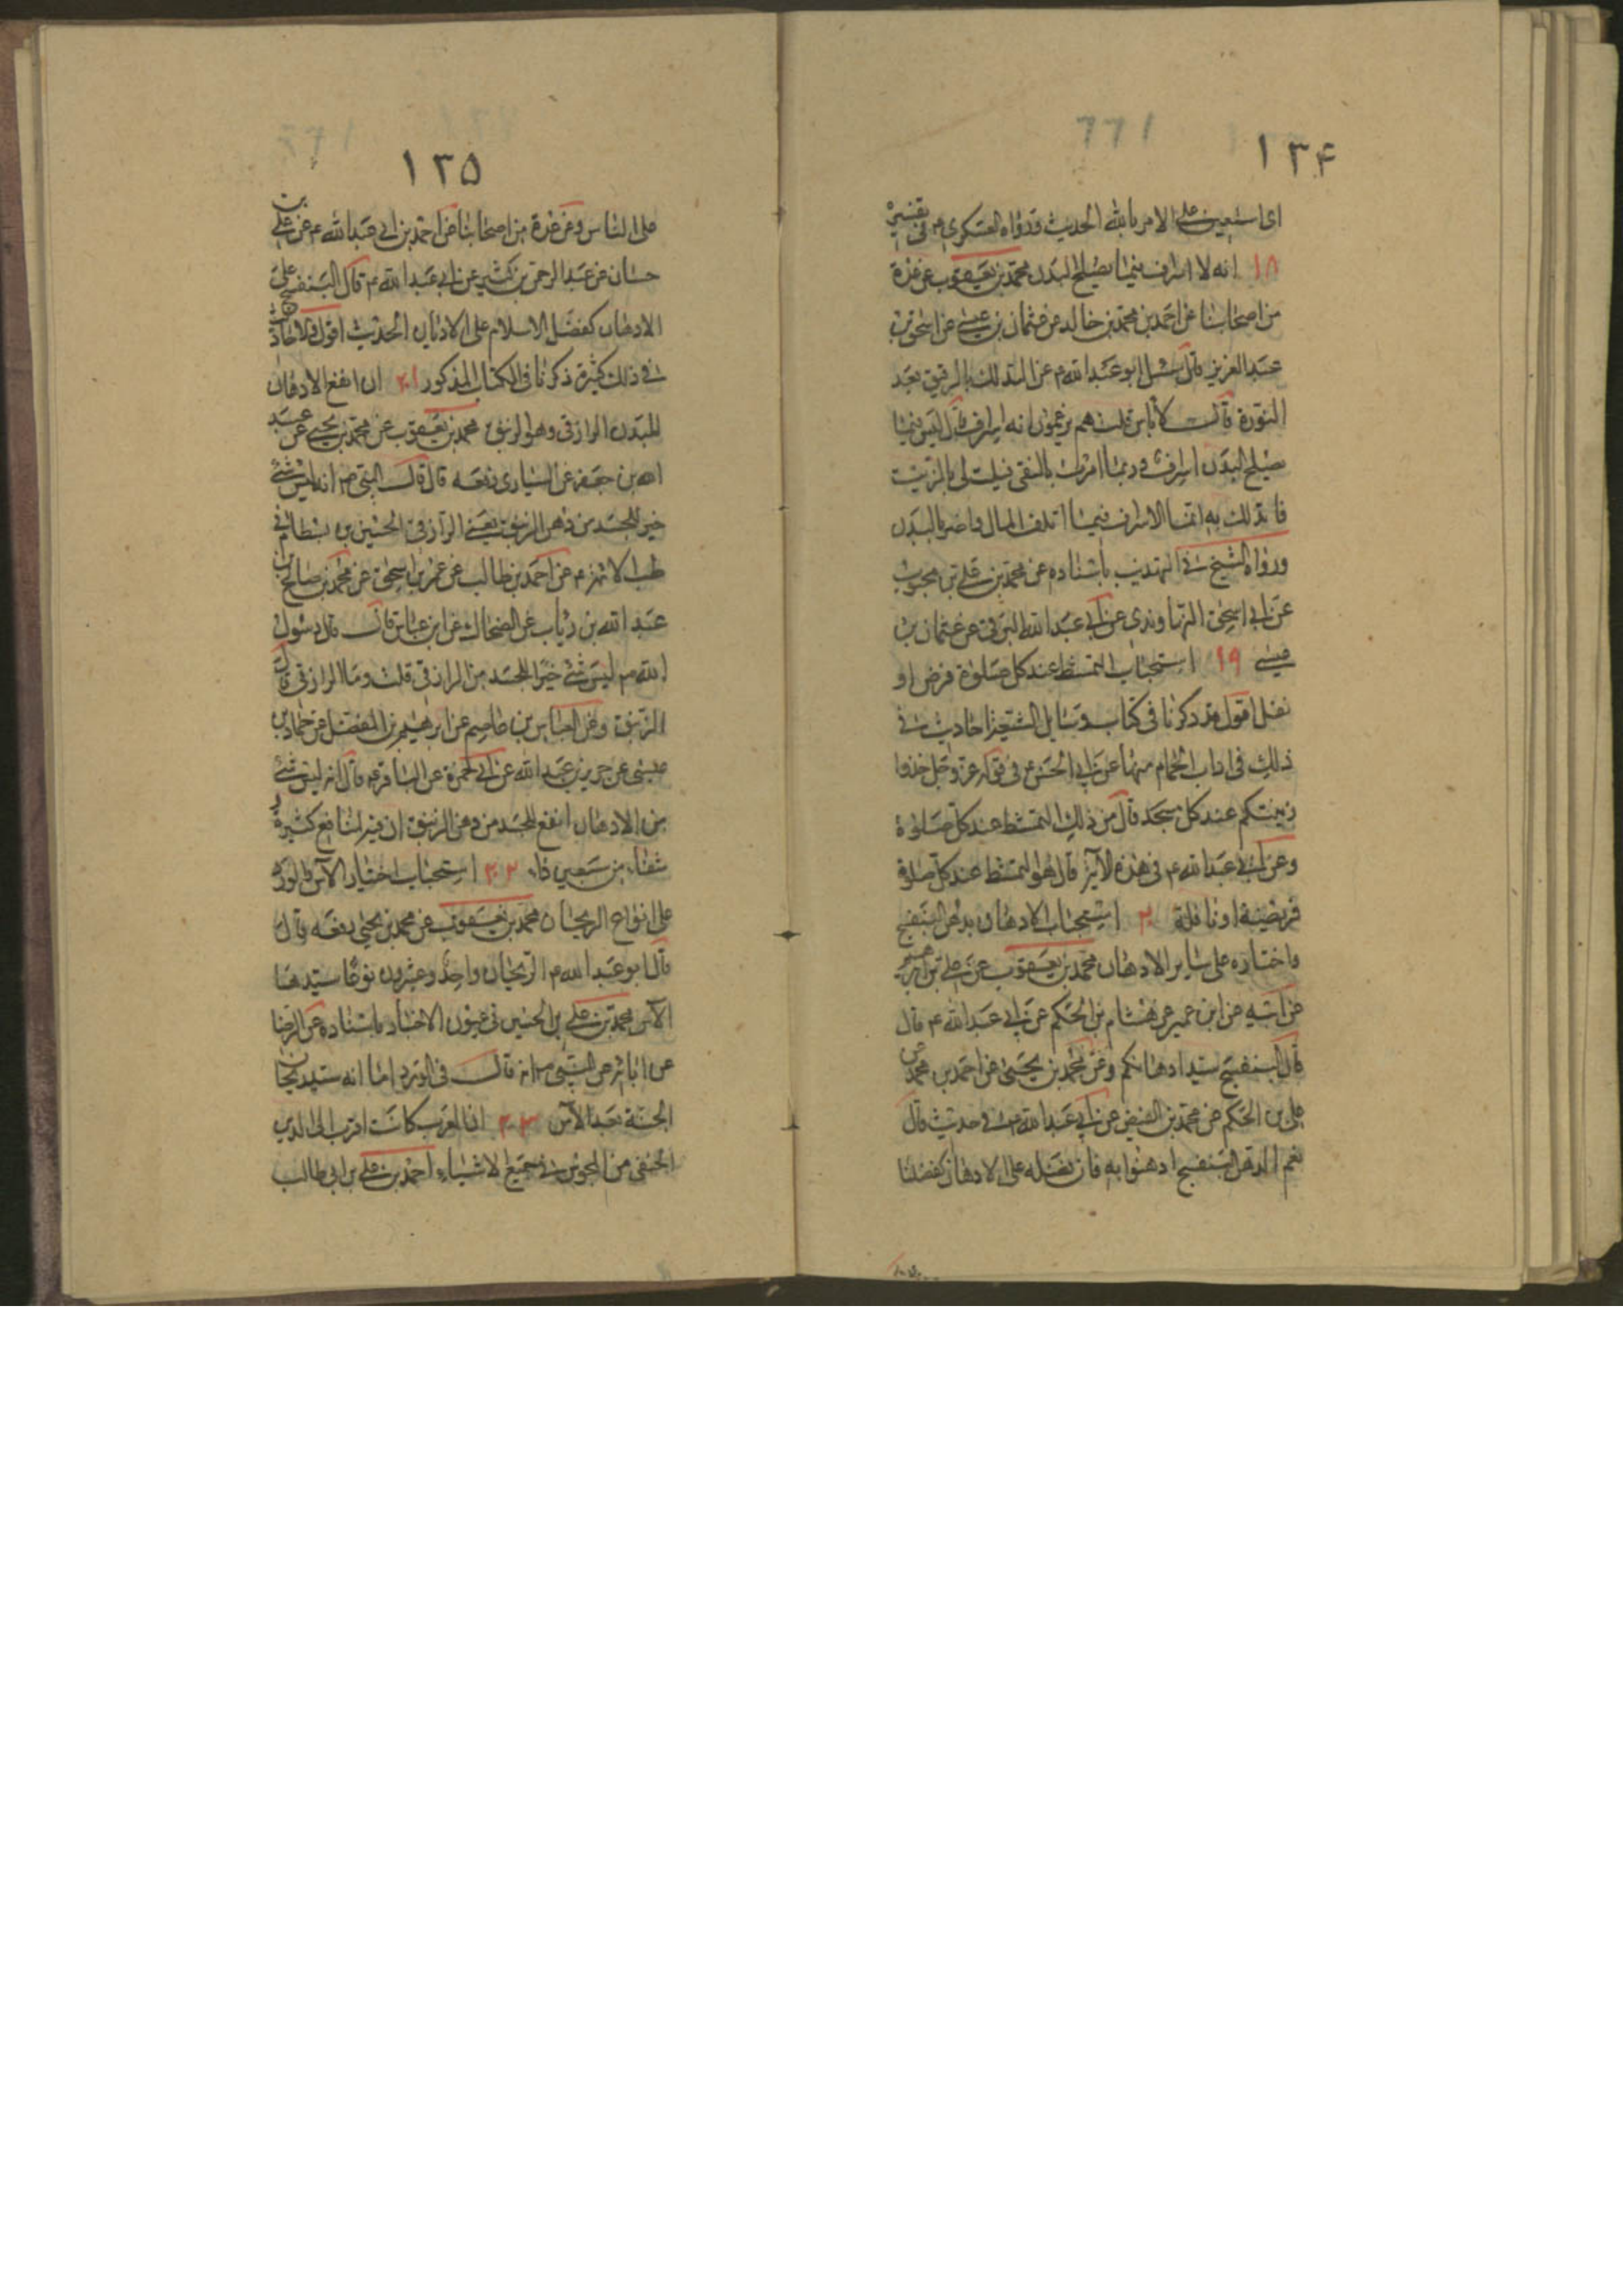 ١٣۴
اى استعين على الامر بالله الحديث ورواه العسكرى ع فى تفسيره
١٨ انه لا اسراف فيما يصلح البدن محمد بن يعقوب عن عدة
من اصحابنا عن احمد بن محمد بن خالد عن عثمان بن عيسى عن اسحق بن
عبد العزيز قال سئل ابو عبد الله ع عن التدلك بالدقيق بعد
النورة قال لا باس قلت هم يزعمون انه اسراف قال ليس فيما
يصلح البدن اسراف وربما امرت بالنقى فيلت لى بالزيت
فاتدلك به انما الاسراف فيما اتلف المال واضر بالبدن
ورواه الشيخ فى التهذيب باسناده عن محمد بن على بن محبوب
عن ابى اسحق النهاوندى عن ابى عبد الله البرقى عن عثمان بن
عيسى ١٩ استحباب التمشط عند كل صلوة فرض او
نفل اقول قد ذكرنا فى كتاب وسايل الشيعة احاديث فى
ذلك فى اداب الحمام منها عن ابى الحسن ع فى قوله عز وجل خذوا
زينتكم عند كل مسجد قال من ذلك التمشط عند كل صلوة
وعن ابى عبد الله ع فى هذه الآية قال هو التمشط عند كل صلوة
فريضة او نافلة ٢٠ استحباب الادهان بدهن البنفسج
واختياره على ساير الادهان محمد بن يعقوب عن على بن ابرهيم
عن ابيه عن ابن عمير عن هشام بن الحكم عن ابى عبد الله ع قال
قال البنفسج سيد ادهانكم وعن محمد بن يحيى عن احمد بن محمد عن
على بن الحكم عن محمد بن الفيض عن ابى عبد الله ع فى حديث قال
نعم الدهن البنفسج ادهنوا به فان فضله على الادهان كفضلنا
١٣۵
على الناس وعن عدة من اصحابنا عن احمد بن ابى عبد الله ع عن على بن
حسان عن عبد الرحمن بن كثير عن ابى عبد الله ع قال البنفسج على
الادهان كفضل الاسلام على الاديان الحديث اقول والاحاديث
فى ذلك كثيرة ذكرنا فى الكتاب المذكور ٢٠١ ان انفع الادهان
للبدن الرازقى وهو الزنبق محمد بن يعقوب عن محمد بن يحيى عن عبد
الله بن جعفر عن السيارى رفعه قال قال النبى ص انه ليس شئ
خير للجسد من دهن الزنبق يعنى الرازقى الحسين بن بسطام فى
طب الائمة ع عن احمد بن طالب عن عمر بن اسحق عن محمد بن صالح بن
عبد الله بن زياب عن الضحاك عن ابن عباس قال قال رسول
الله ص ليس شئ خيرا للجسد من الرازقى قلت وما الرازقى قال
الزنبق وعن العباس بن عاصم عن ابرهيم بن المفضل عن حماد بن
عيسى عن حريز بن عبد الله عن ابى حمزة عن الباقر ع قال انه ليس شئ
من الادهان انفع للجسد من دهن الزنبق ان فيه لمنافع كثيرة و
شفاء من سبعين داء ٢٠٢ استحباب اختيار الآس والورد
على انواع الريحان محمد بن يعقوب عن محمد بن يحيى رفعه قال
قال ابو عبد الله ع الريحان واحد وعشرون نوعا سيدها
الآس محمد بن على بن الحسين فى عيون الاخبار باسناده عن الرضا
عن ابائه عن النبى ص انه قال فى الورد اما انه سيد ريحان
الجنة بعد الآس ٢٠٣ ان العرب كانت اقرب الى الدين
الحنفى من المجوس فى جميع الاشياء احمد بن على بن ابى طالب